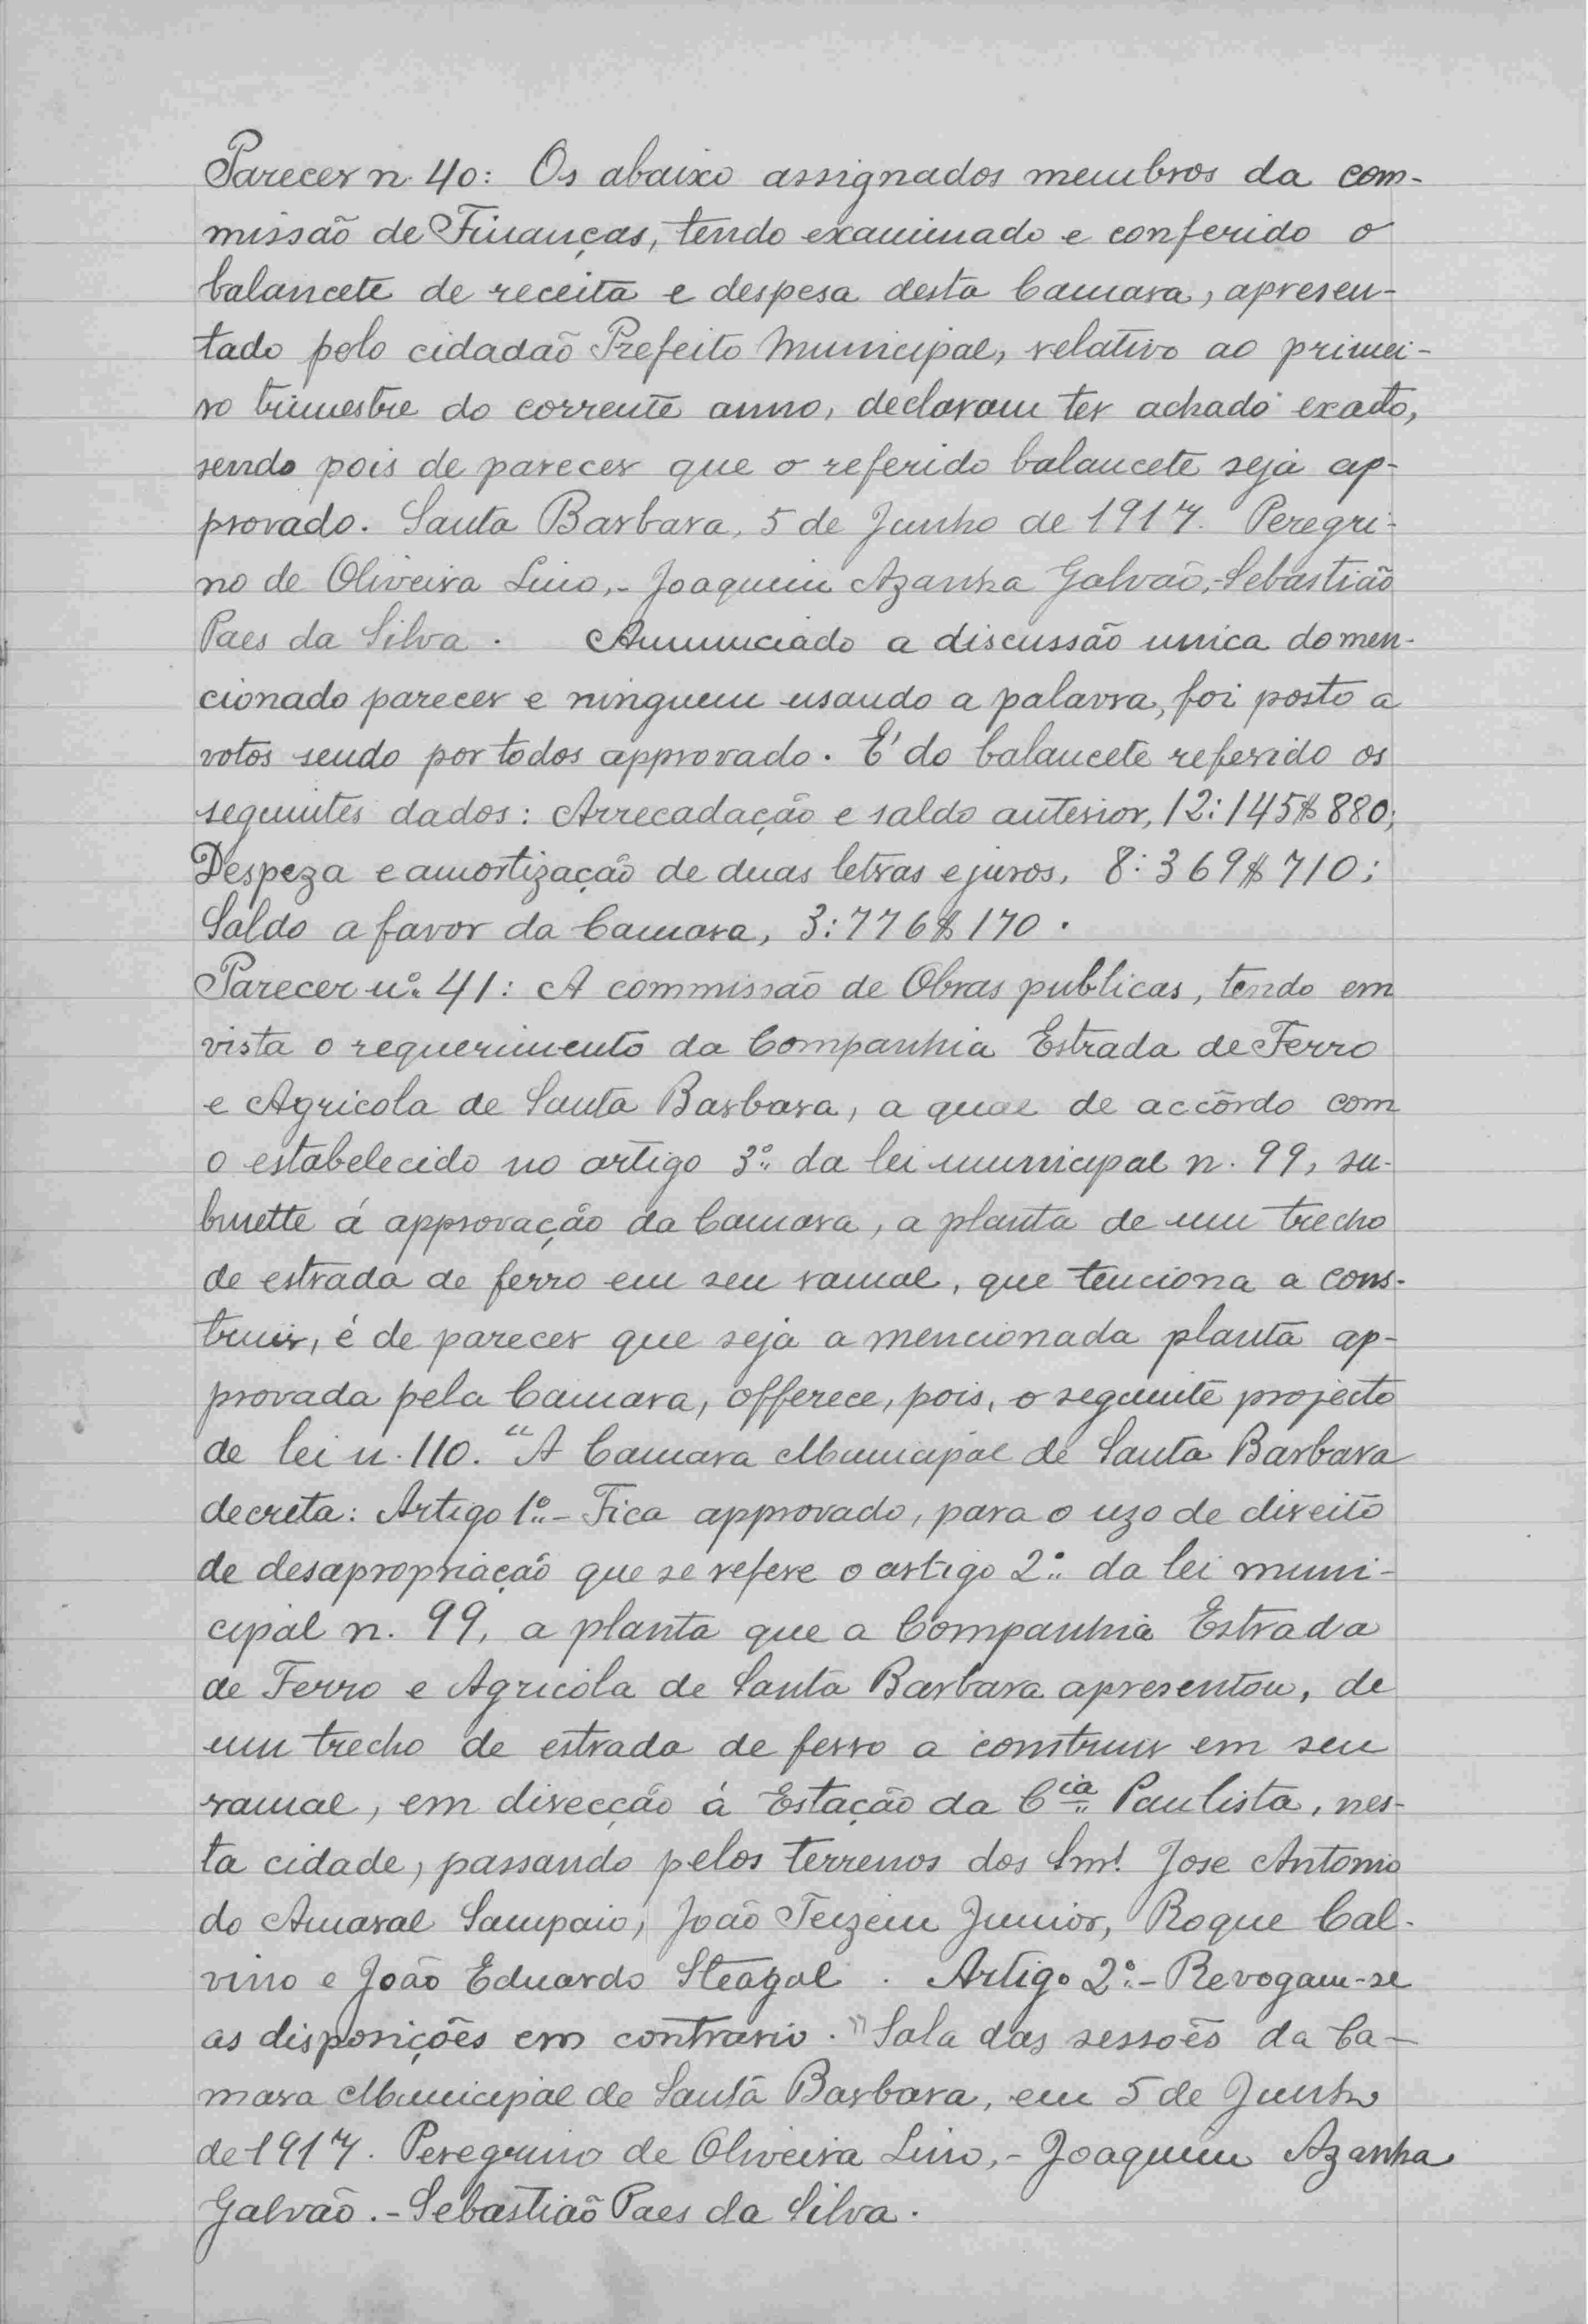 Parecer n. 40: Os abaixo assignados membros da com-
missão de Finanças, tendo examinado e conferido o
balancete de receita e despesa desta Camara, apresen-
tado pelo cidadão Prefeito Municipal, relativo ao primei-
ro trimestre do corrente anno, declaram ter achado exacto,
sendo pois de parecer que o referido balancete seja ap-
provado. Santa Barbara, 5 de Junho de 1917. Peregri-
no de Oliveira Lino,- Joaquim Azanha Galvão,-Sebastião
Paes da Silva. Annunciado a discussão unica do men-
cionado parecer e ninguem usando a palavra, foi posto a
votos sendo por todos approvado. E' do balancete referido os
seguintes dados: Arrecadação e saldo anterior, 12:145$880;
Despeza e amortização de duas letras e juros, 8:369$710;
Saldo a favor da Camara, 3:776$170.
Parecer nº 41: A commissão de Obras publicas, tendo em
vista o requerimento da Companhia Estrada de Ferro
e Agricola de Santa Barbara, a qual de accôrdo com
o estabelecido no artigo 3º da lei municipal n. 99, su-
bmette á approvação da Camara, a planta de um trecho
de estrada de ferro em seu ramal, que tenciona a cons-
truir, é de parecer que seja a mencionada planta ap-
provada pela Camara, offerece, pois, o seguinte projecto
de lei n. 110. "A Camara Municipal de Santa Barbara
decreta: Artigo 1º- Fica approvado, para o uzo de direito
de desapropriação que se refere o artigo 2º da lei muni-
cipal n. 99, a planta que a Companhia Estrada
de Ferro e Agricola de Santa Barbara apresentou, de
um trecho de estrada de ferro a construir em seu
ramal, em direcção á Estação da Cia Paulista, nes-
ta cidade, passando pelos terrenos dos Snrs. Jose Antonio
do Amaral Sampaio, João Junior, Roque Cal-
vino e João Eduardo Steagal. Artigo 2º- Revogam-se
as disposições em contrario." Sala das sessões da Ca-
mara Municipal de Santa Barbara, em 5 de Junho
de 1917. Peregrino de Oliveira Lino,- Joaquim Azanha
Galvão.- Sebastião Paes da Silva.